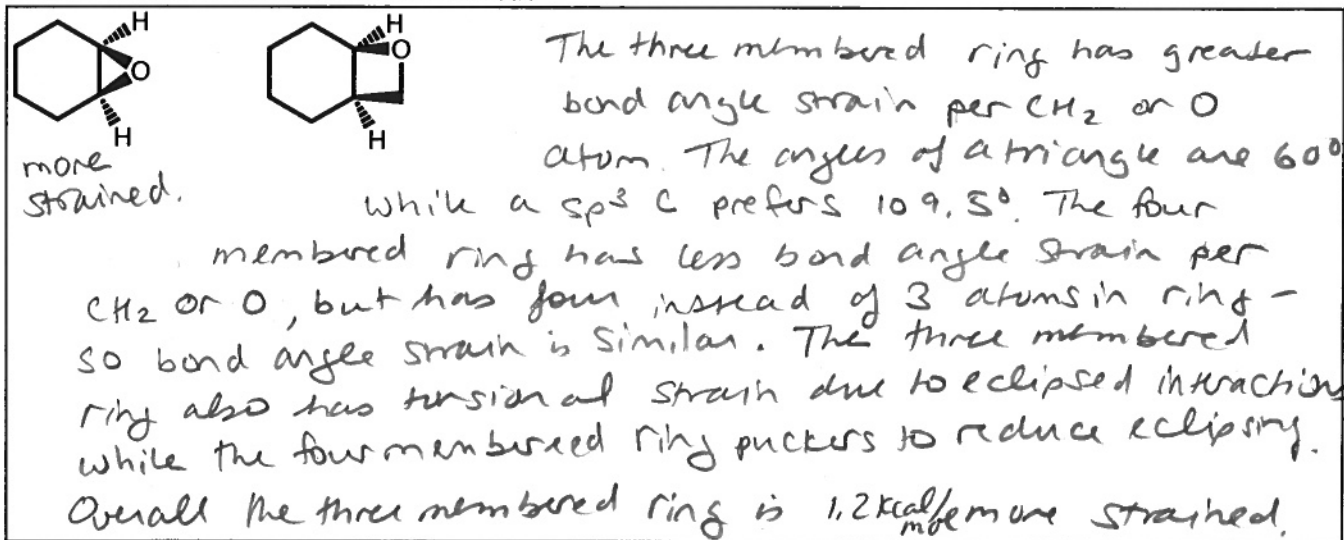 H
O
H
H
O
H
more
strained.
The three membered ring has greater
bond angle strain per CH₂ or O
atom. The angles of a triangle are 60°
while a sp³ C prefers 109.5°. The four
membered ring has less bond angle strain per
CH₂ or O, but has four instead of 3 atoms in ring -
so bond angle strain is similar. The three membered
ring also has torsional strain due to eclipsed interactions
while the four membereed ring puckers to reduce eclipsing.
Overall the three membered ring is 1.2 kcal/mole more strained.